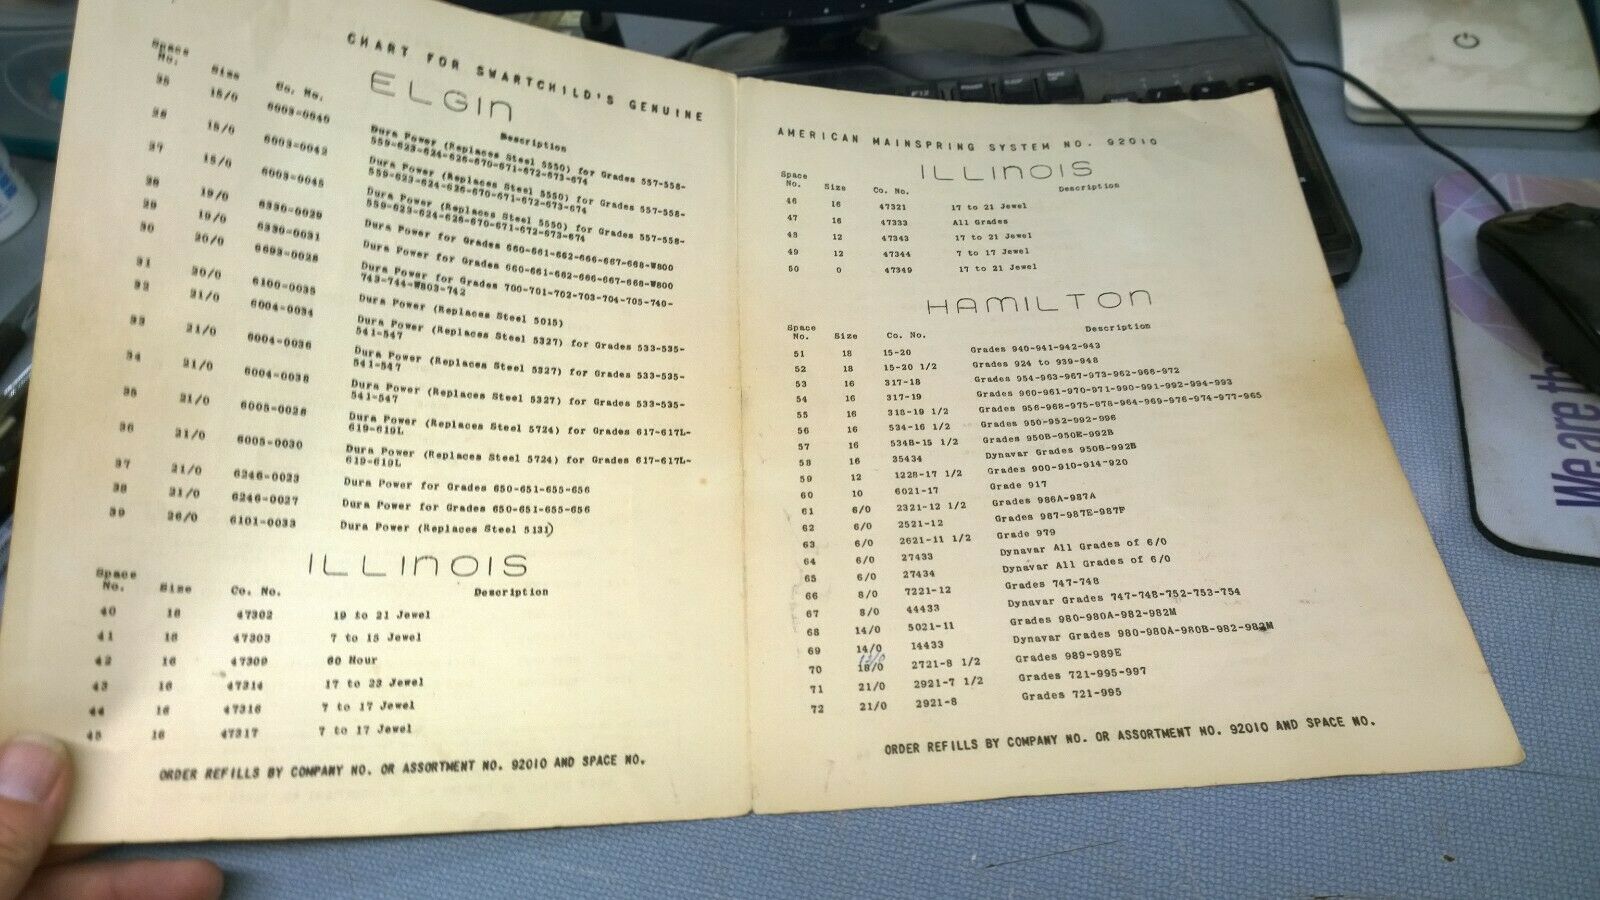 CHART FOR SWARTCHILD'S GENUINE
ELGIN
Space No. Size Co. No. Description
25 18/0 6003=0040 Dura Power (Replaces Steel 5550) for Grades 557-558-
559-623-624-626-670-671-672-673-674
26 15/0 6003=0042 Dura Power (Replaces Steel 5550) for Grades 557-558-
559-623-624-626-670-671-672-673-674
27 15/0 6003=0045 Dura Power (Replaces Steel 5550) for Grades 557-558-
559-623-624-626-670-671-672-673-674
28 19/0 6330=0029 Dura Power for Grades 660-661-662-666-667-668-W800
29 19/0 6330=0031 Dura Power for Grades 660-661-662-666-667-668-W800
30 20/0 6693=0028 Dura Power for Grades 700-701-702-703-704-705-740-
743-744-W803-742
31 20/0 6100=0035 Dura Power (Replaces Steel 5015)
32 21/0 6004=0034 Dura Power (Replaces Steel 5327) for Grades 533-535-
541-547
33 21/0 6004=0036 Dura Power (Replaces Steel 5327) for Grades 533-535-
541-547
34 21/0 6004=0038 Dura Power (Replaces Steel 5327) for Grades 533-535-
541-547
35 21/0 6005=0028 Dura Power (Replaces Steel 5724) for Grades 617-617L-
619-619L
36 21/0 6005=0030 Dura Power (Replaces Steel 5724) for Grades 617-617L-
619-619L
37 21/0 6246=0023 Dura Power for Grades 650-651-655-656
38 21/0 6246=0027 Dura Power for Grades 650-651-655-656
39 26/0 6101=0033 Dura Power (Replaces Steel 5131)
ILLINOIS
Space No. Size Co. No. Description
40 18 47302 19 to 21 Jewel
41 18 47303 7 to 15 Jewel
42 16 47309 60 Hour
43 16 47314 17 to 23 Jewel
44 16 47316 7 to 17 Jewel
45 16 47317 7 to 17 Jewel
ORDER REFILLS BY COMPANY NO. OR ASSORTMENT NO. 92010 AND SPACE NO.
AMERICAN MAINSPRING SYSTEM NO. 92010
ILLINOIS
Space No. Size Co. No. Description
46 16 47321 17 to 21 Jewel
47 16 47333 All Grades
48 12 47343 17 to 21 Jewel
49 12 47344 7 to 17 Jewel
50 0 47349 17 to 21 Jewel
HAMILTON
Space No. Size Co. No. Description
51 18 15-20 Grades 940-941-942-943
52 18 15-20 1/2 Grades 924 to 939-948
53 16 317-18 Grades 954-963-967-973-962-966-972
54 16 317-19 Grades 960-961-970-971-990-991-992-994-993
55 16 318-19 1/2 Grades 956-968-975-978-964-969-976-974-977-965
56 16 534-16 1/2 Grades 950-952-992-996
57 16 534B-15 1/2 Grades 950B-950E-992B
58 16 35434 Dynavar Grades 950B-992B
59 12 1228-17 1/2 Grades 900-910-914-920
60 10 6021-17 Grade 917
61 6/0 2321-12 1/2 Grades 986A-987A
62 6/0 2521-12 Grades 987-987E-987F
63 6/0 2621-11 1/2 Grade 979
64 6/0 27433 Dynavar All Grades of 6/0
65 6/0 27434 Dynavar All Grades of 6/0
66 8/0 7221-12 Grades 747-748
67 8/0 44433 Dynavar Grades 747-748-752-753-754
68 14/0 5021-11 Grades 980-980A-982-982M
69 14/0 14433 Dynavar Grades 980-980A-980B-982-982M
70 18/0 2721-8 1/2 Grades 989-989E
71 21/0 2921-7 1/2 Grades 721-995-997
72 21/0 2921-8 Grades 721-995
ORDER REFILLS BY COMPANY NO. OR ASSORTMENT NO. 92010 AND SPACE NO.
We are the